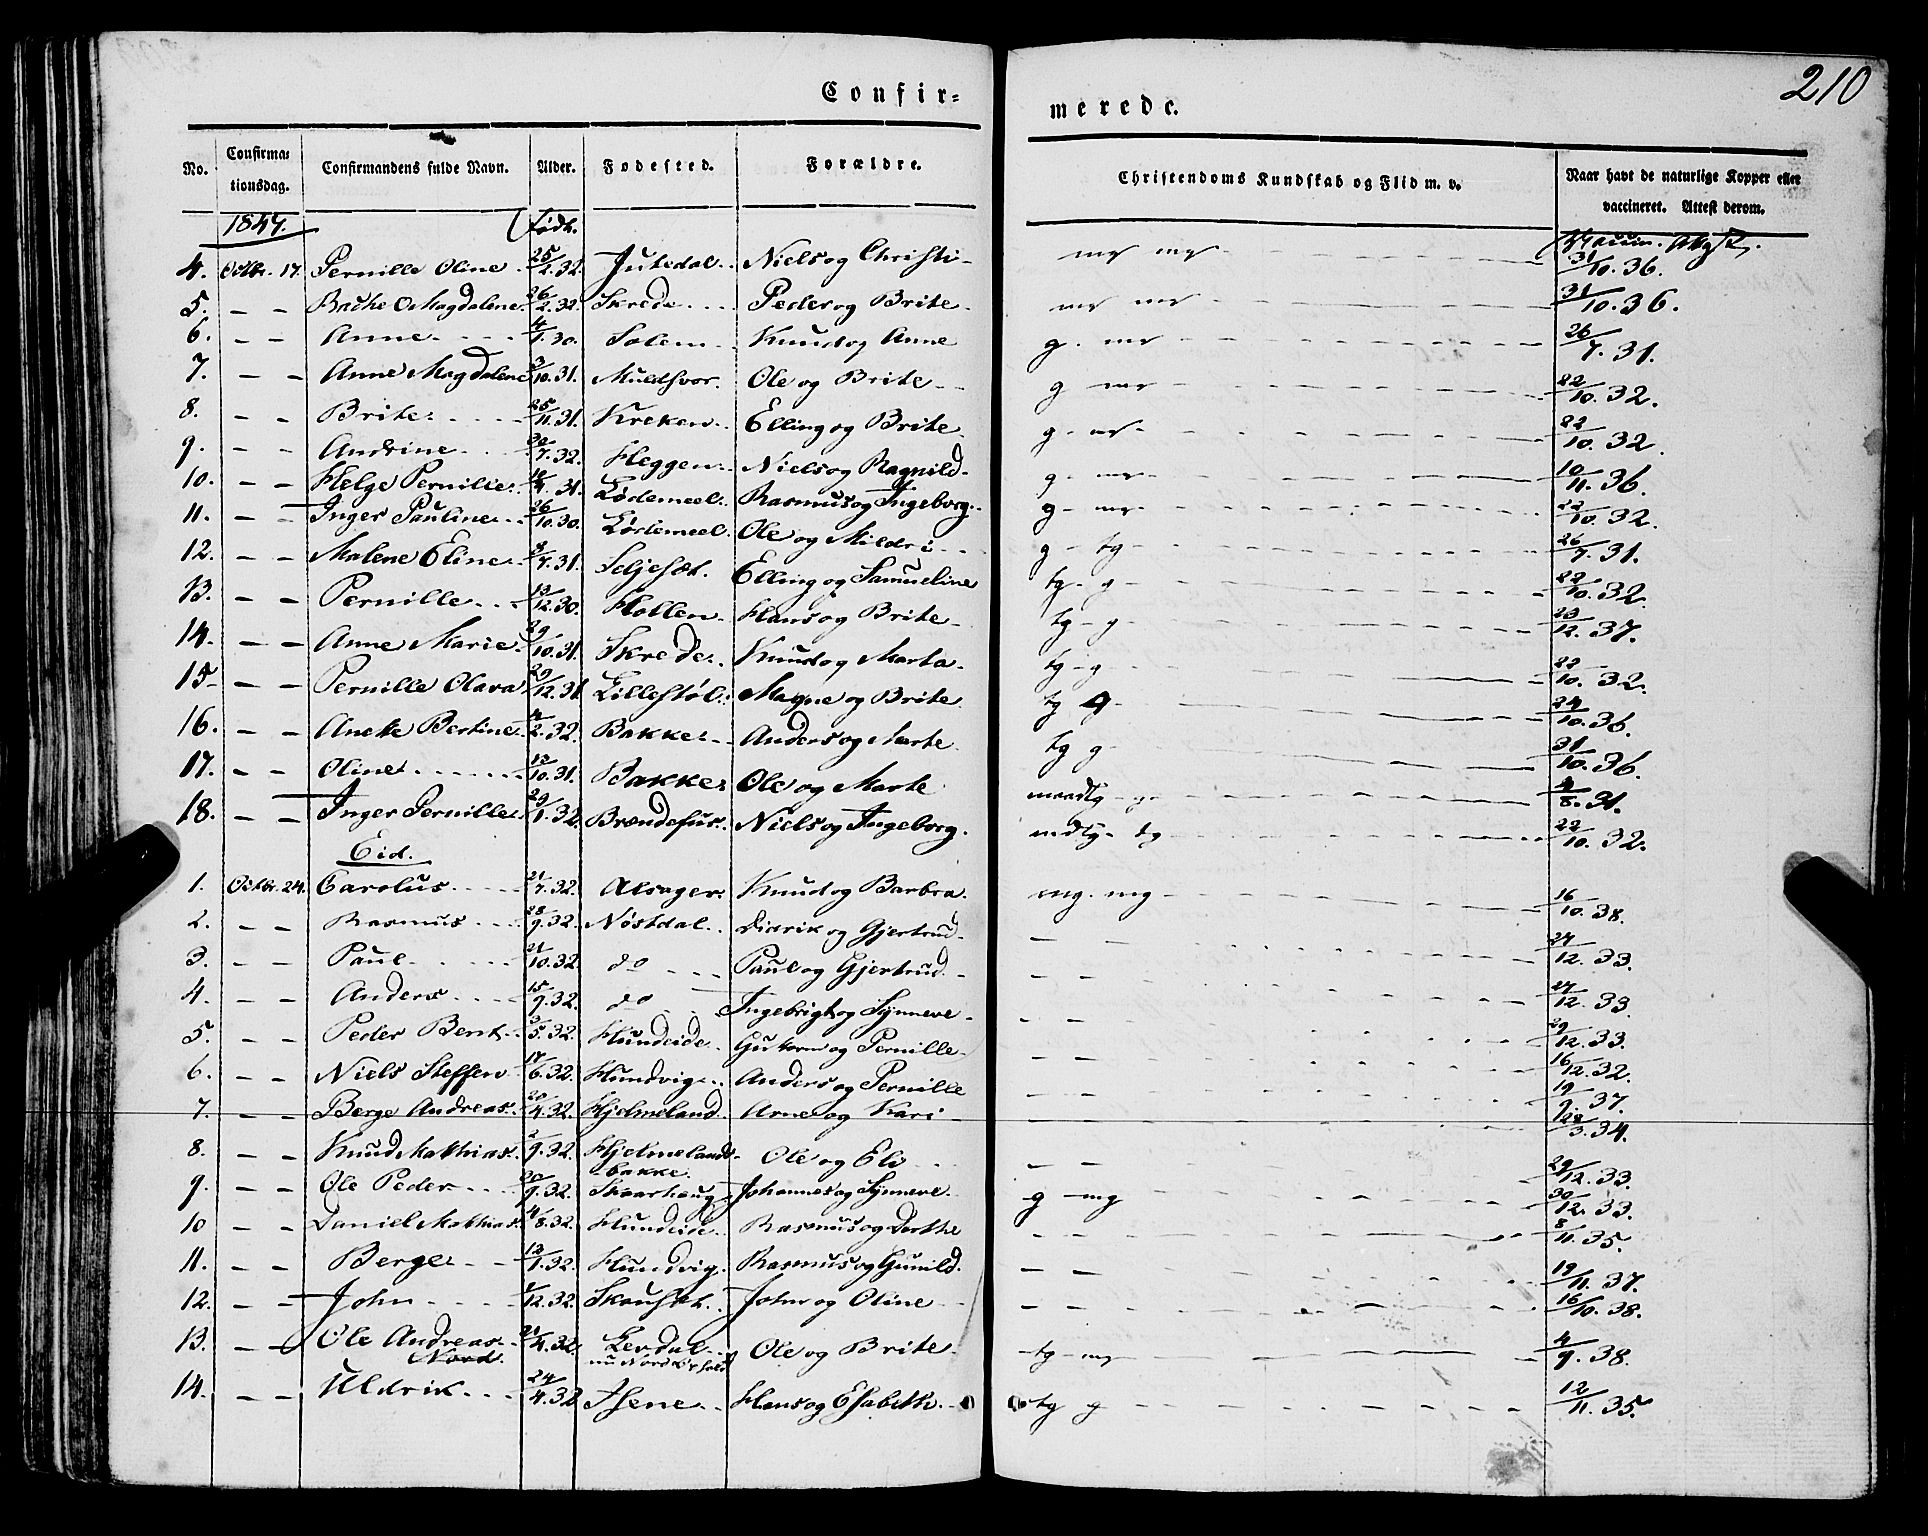 210
Confir=
merede.
No. Confirma= tionsdag. Confirmandens fulde Navn. Alder. Fødested. Forældre. Christendoms Kundskab og Flid m. v. Naar havt de naturlige Kopper eller vaccineret. Attest derom.
1847. Födt.
4. Octbr. 17. Pernille Oline 25/2.32. Jutedal Niels og Christi mg mg 31/10.36.
5. Magdalene 26/2.32. Skrede Peder og Brite mg mg 31/10.36.
6. Anne 4/1.30. Solem Knud og Anne g. mg 26/7.31.
7. Anne Magdalene 3/10.31. Muldsvor. Ole og Brite g mg 22/10.32.
8. Brite 25/11.31. Kreken Elling og Brite g. mg 22/10.32.
9. Andrine 30/7.32. Heggen Niels og Ragnild g mg 10/11.36.
10. Helge Pernille Lødemeel Rasmus og Ingeborg g mg 22/10.32.
11. Inger Pauline 26/10.30. Lødemeel Ole og Mildri g tg 26/7.31.
12. Malene Eline 8/7.31. Seljeset. Elling og Samueline tg g 22/10.32.
13. Pernille 13/12.30. Hollen Hans og Brite tg g 23/12.37.
14. Anne Marie 29/10.31. Skrede Knud og Marta tg g 22/10.32.
15 Pernille Olava 29/12.31 Lillestøl Magne og Brite tg g 24/10.36.
16. Aneke Bertine 4/2.32. Bakke Anders og Marte tg g 31/10.36.
17. Oline 12/10.31. Bakke Ole og Marte g 4/8.31.
18. Inger Pernille 29/1.32. Brændefur Niels og Ingeborg. tg 22/10.32.
Eid.
1. Octbr. 24. Carolus 21/7.32. Alsager Knud og Barbra. mg. mg 16/10.38.
2. Rasmus 28/9.32. Nøstdal Didrik og Gjertrud 27/12.33.
3. Paul 21/10.32. do Paul og Gjertrud 27/12.33.
4. Anders 15/9.32. do Ingebrigt og Synneve 29/12.33.
5. Peder Bent 3/5.32. Hundeide Guttorm og Pernille 16/12.32.
6. Niels Steffen 17/6.32. Hundvig Anders og Pernille 19/9.37.
7. Berge Andreas 20/4.32. Hjelmeland Arne og Kari 28/3.34.
8. Knud Mathias 2/9.32. Hjelmelands-
bakke Ole og Eli 29/12.33.
9. Ole Peder 30/9.32. Skaarhaug Johannes og Synneve g mg 30/12.33.
10 Daniel Mathias 4/8.32. Hundeide Rasmus og Dorthe 8/11.35.
11. Berge 12/1.32. Hundvig Rasmus og Gunild. 19/11.37.
12. John 1/12.32. Skouset. John og Oline 16/10.38.
13. Ole Andreas 21/4.32. Lerdal Ole og Brite tg mg 4/9.38.
Nord.
14. Uldrik 24/4.32 Isene Hans og Elsabeth tg g 12/11.35.